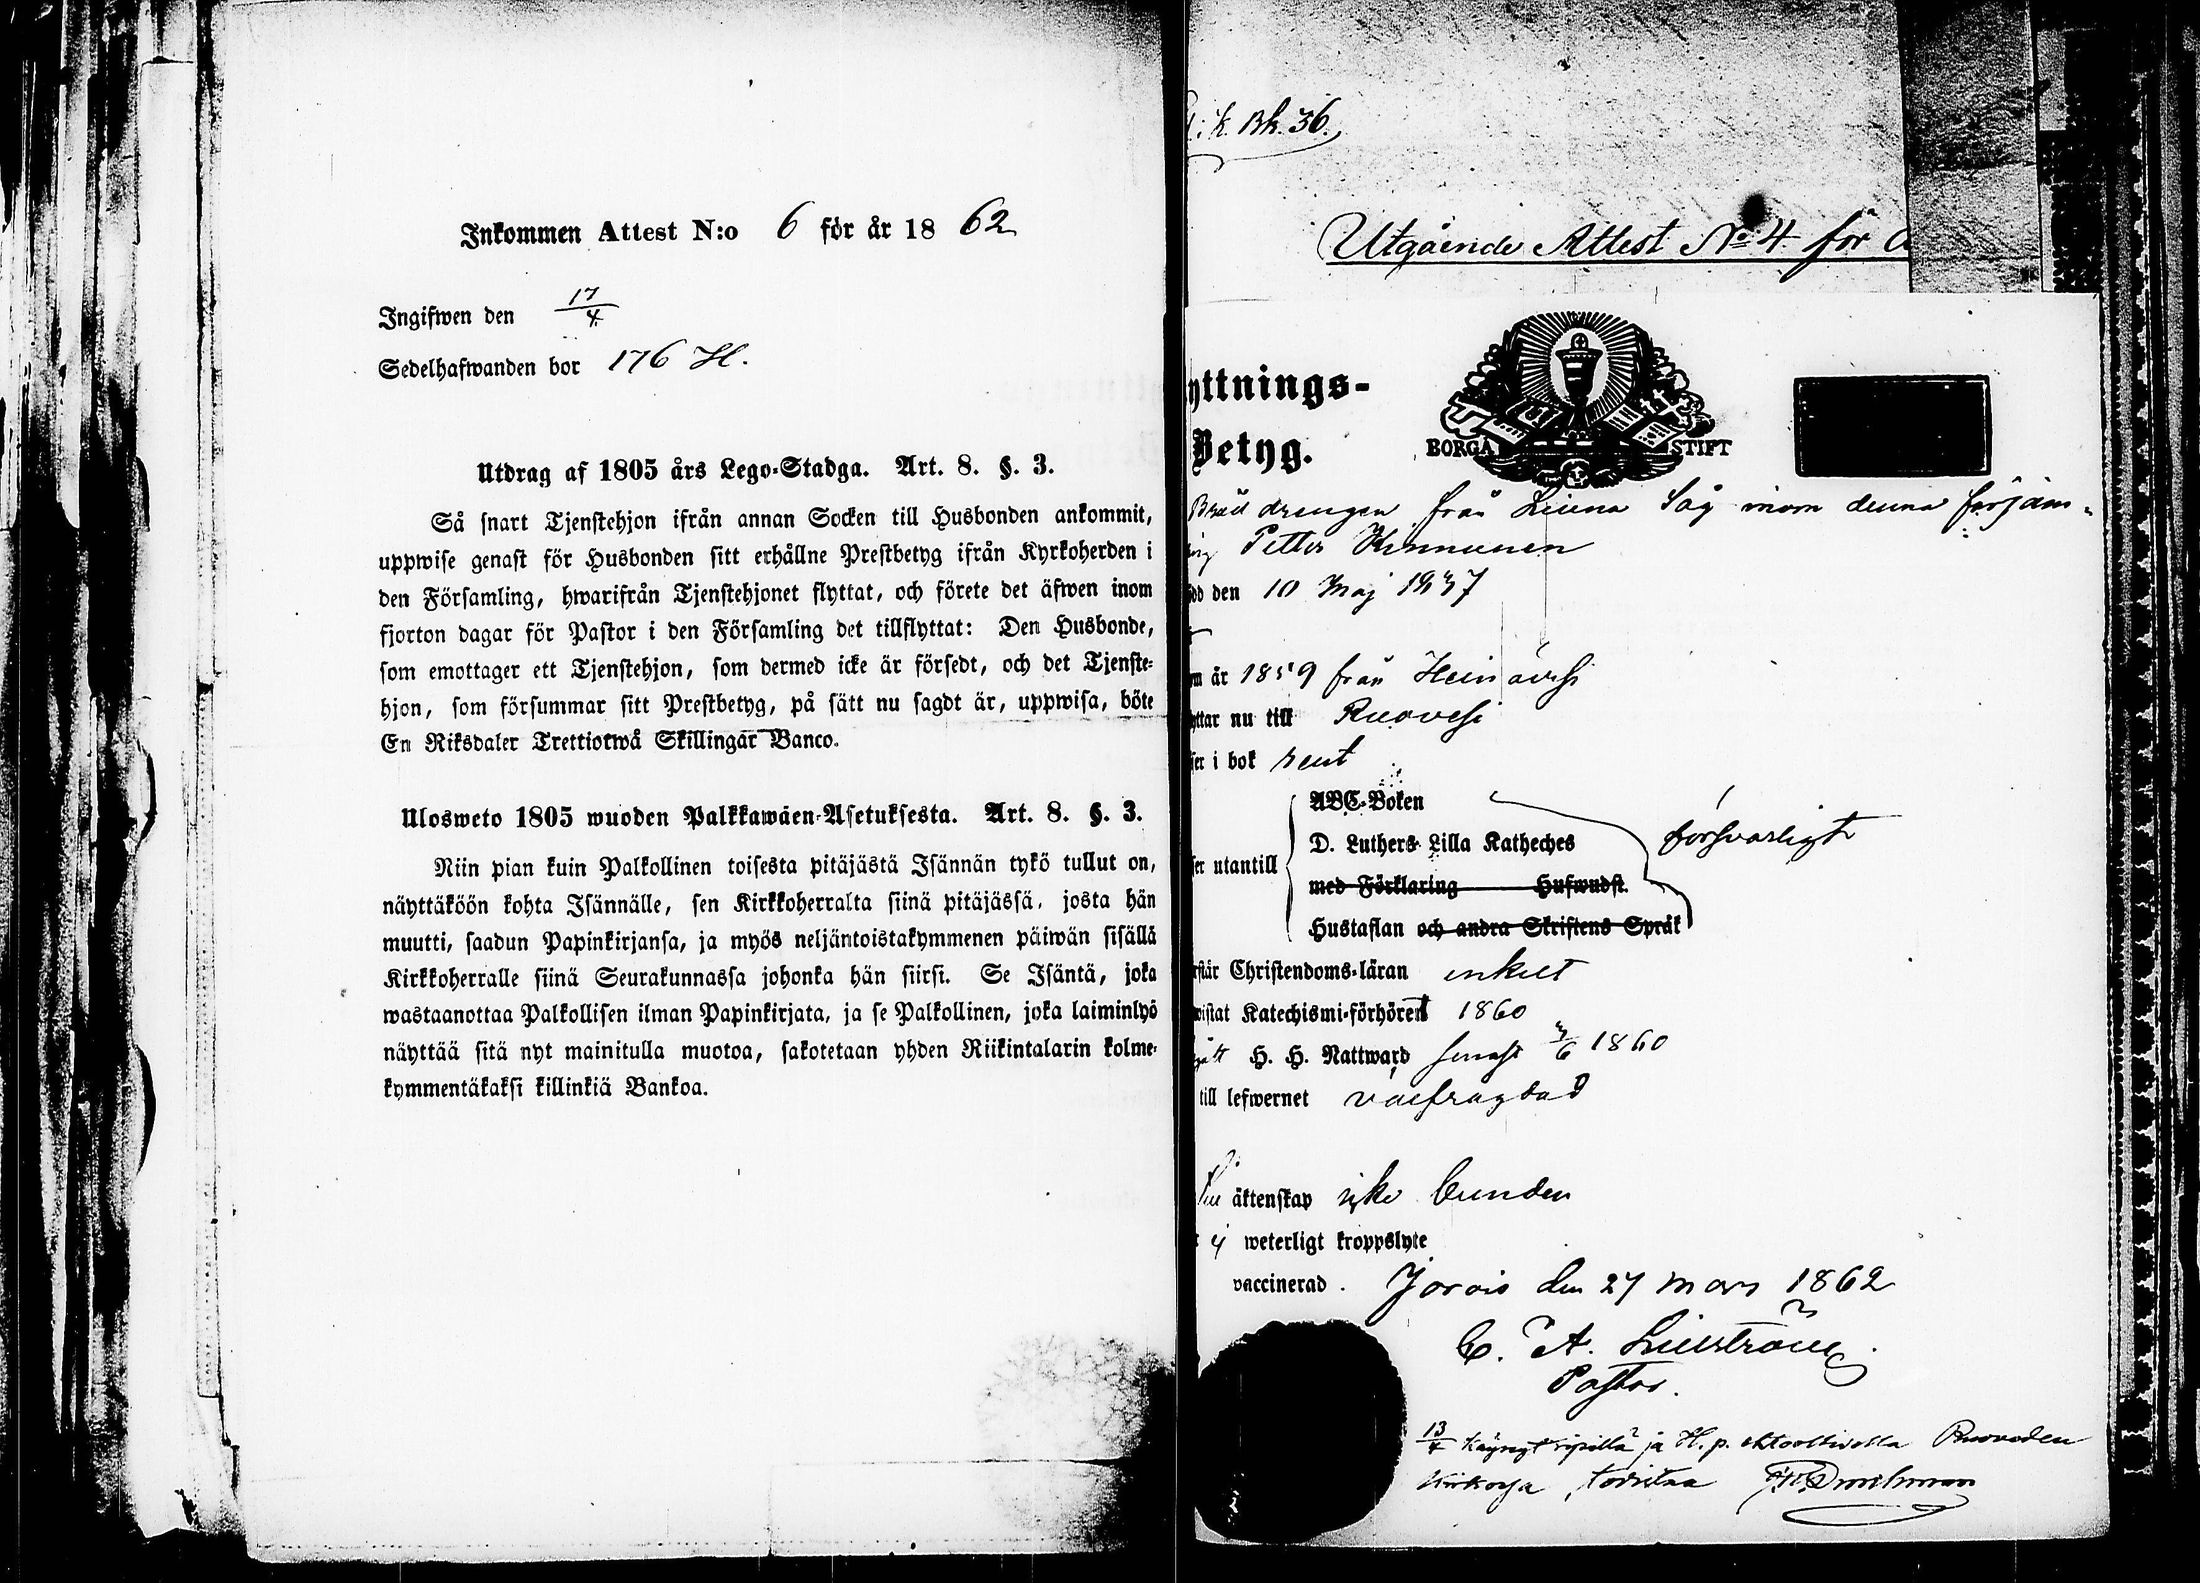 Inkommen Attest N:o 6 för år 18 62
Ingifwen den 17/4.
Sedelhafwanden bor 176 H.
Utdrag af 1805 års Lego-Stadga. Art. 8. §. 3.
Så snart Tjenstehjon ifrån annan Socken till Husbonden ankommit,
uppwise genast för Husbonden sitt erhållne Prestbetyg ifrån Kyrkoherden i
den Församling, hwarifrån Tjenstehjonet flyttat, och förete det äfwen inom
fjorton dagar för Pastor i den Församling det tillflyttat: Den Husbonde,
som emottager ett Tjenstehjon, som dermed icke är försedt, och det Tjenste-
hjon, som försummar sitt Prestbetyg, på sätt nu sagdt är, uppwisa, böte
En Riksdaler Trettiotwå Skillingar Banco.
Ulosweto 1805 wuoden Palkkawäen-Asetuksesta. Art. 8. §. 3.
Niin pian kuin Palkollinen toisesta pitäjästä Isännän tykö tullut on,
näyttäköön kohta Isännälle, sen Kirkkoherralta siinä pitäjässä, josta hän
muutti, saadun Papinkirjansa, ja myös neljäntoistakymmenen päiwän sisällä
Kirkkoherralle siinä Seurakunnassa johonka hän siirsi. Se Isäntä, joka
wastaanottaa Palkollisen ilman Papinkirjata, ja se Palkollinen, joka laiminlyö
näyttää sitä nyt mainitulla muotoa, sakotetaan yhden Riikintalarin kolme-
kymmentäkaksi killinkiä Bankoa.
k. Bk. 36.
Utgående Attest No 4 för
yttnings-
Betyg.
BORGÅ STIFT
drengen från Såg inom denna försam-
Petter Kinnunen
den 10 Maj 1837
år 1859 från Heinäwesi
yttar nu till Ruovesi
i bok rent
ABC-Boken
D. Luthers Lilla Katheches
försvarligt
utantill
med Förklaring Hufwudst.
Hustaflan och andra Skriftens Språk
Christendoms-läran enkelt
wistat Katechismi-förhören 1860
H. H. Nattward senast 3/6 1860
till lefwernet väl fräjdad
äktenskap icke bunden
ej weterligt kroppslyte
vaccinerad. Jorois den 27 Mars 1862
C. A.
Pastor.
13/4 käynyt ripillä ja H. p. ehtoollisella Ruoveden
Kirkossa, todistaa